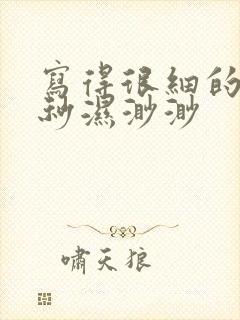 寫得很細的
秒濕渺渺
嘯天狼